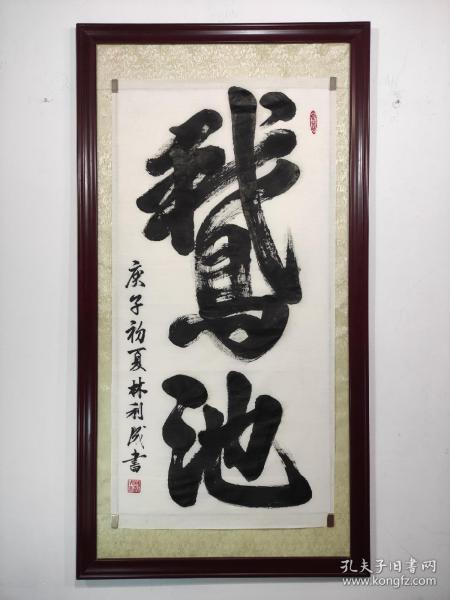 鵞池
庚子初夏林利成書
孔夫子旧书网
www.kongfz.com